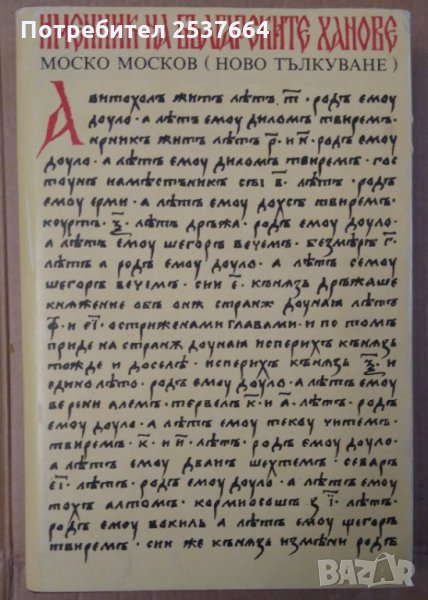 Потребител 2537664
ИМЕННИК НА БЪЛГАРСКИТЕ ХАНОВЕ
МОСКО МОСКОВ (НОВО ТЪЛКУВАНЕ)
Авитохолъ житъ лѣтъ .т҃. родъ емоу
доуло. а лѣтъ емоу диломъ твиремъ.
ирникъ житъ лѣтъ р҃. и н҃. родъ емоу
доуло. а лѣтъ емоу диломъ твиремъ. гос
тоунъ намѣстъникъ сы в҃. лѣтъ. родъ
емоу ерми. а лѣтъ емоу дохсъ твиремъ.
коуртъ. ѯ҃. лѣтъ дръжа. родъ емоу доуло.
а лѣтъ емоу шегоръ вечемъ. безмеръ г҃.
лѣтъ а родъ емоу доуло. а лѣтъ семоу
шегоръ вечемъ. сии е҃. кънѧзь дръжаше
кнѧжение объ онѫ странѫ доунаꙗ лѣтъ
ф҃. и е҃і. остриженами главами. и по томъ
приде на странѫ доунаꙗ исперихъ кънѧзь
тожде и доселѣ. исперихъ кънѧзь ѯ҃. и
едино лѣто. родъ емоу доуло. а лѣтъ емоу
верени алемъ. тервелъ к҃. и а҃. лѣтъ. родъ
емоу доуло. а лѣтъ емоу текоу читемъ.
твиремъ. к҃. и и҃. лѣтъ. родъ емоу доуло.
а лѣтъ емоу дванъ шехтемъ. севаръ
е҃і. лѣтъ. родъ емоу доуло. а лѣтъ емоу
тохъ алтомъ. кормисошъ з҃і. лѣтъ.
родъ емоу вокиль а лѣтъ емоу шегоръ
твиремъ. сии же кънѧзь измѣни родъ
BAZAR